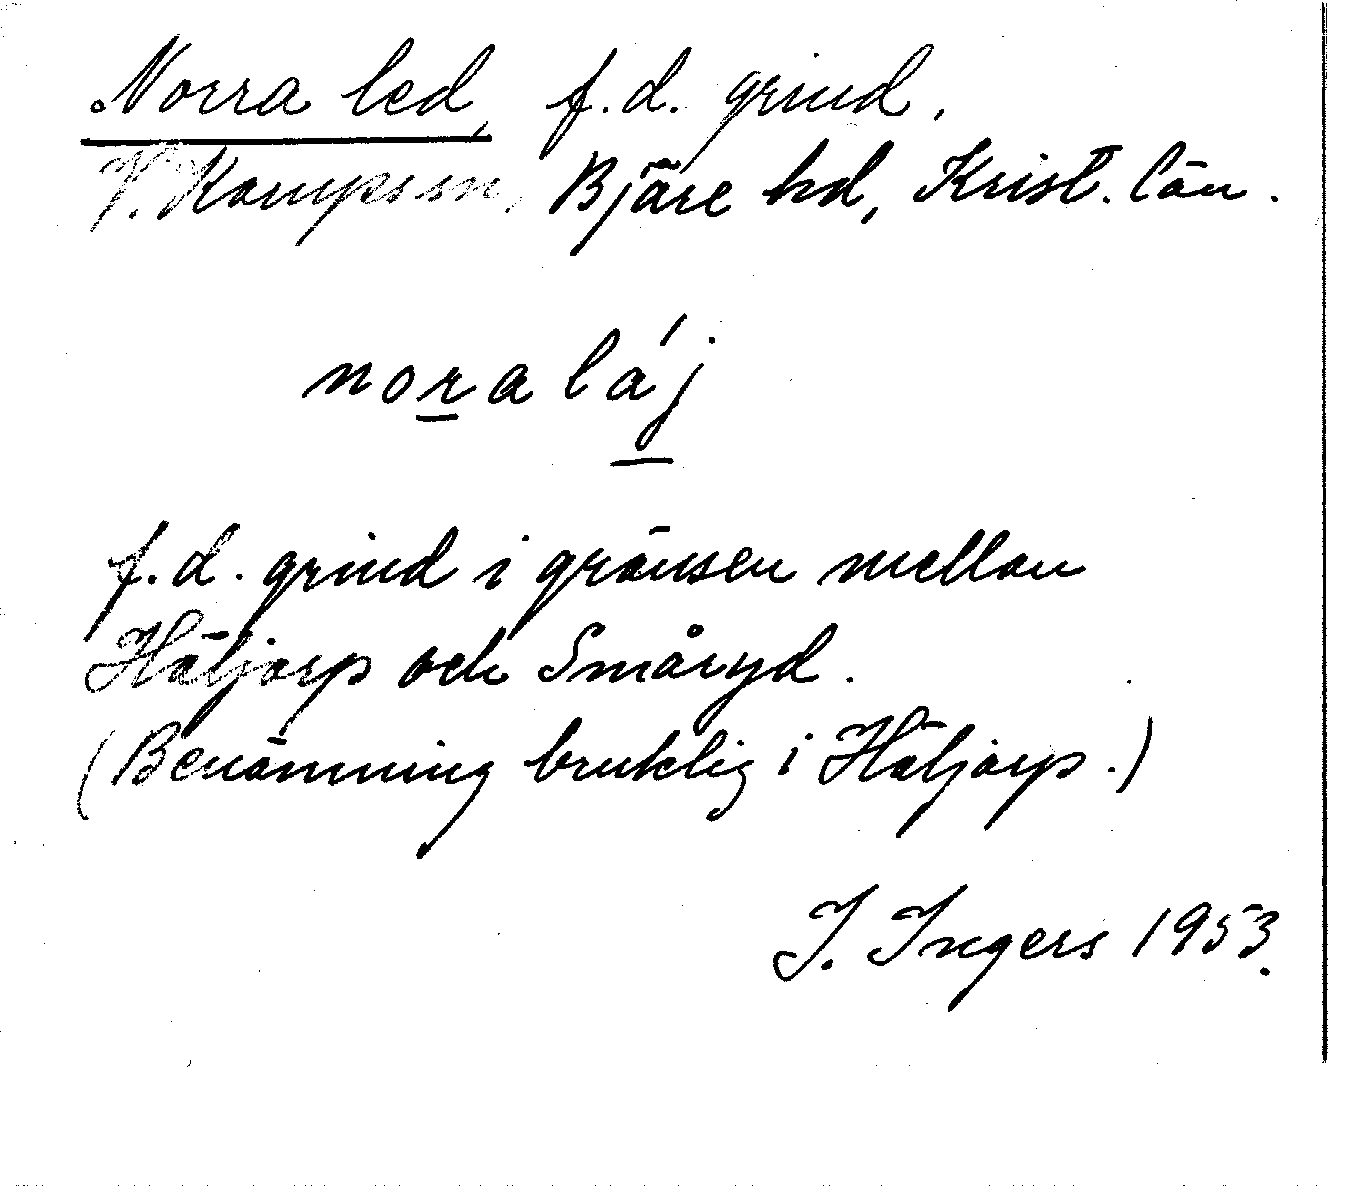 Norra led, f.d. grind.
V. Karups sn, Bjäre hd, Krist. län.
nora láj
f.d. grind i gränsen mellan
Häljarp och Småryd.
(Benämning bruklig i Häljarp.)
I. Ingers 1953.